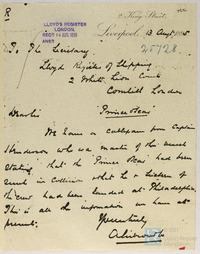 R
2 King Street,
LLOYD'S REGISTER
LONDON.
RECD 14 AUG 1885
ANSD
Liverpool, 13 Aug 1885
To The Secretary
Lloyd Register of Shipping
2 White Lion Court
Cornhill London
Prince Oscar
Dear Sir
We have a cablegram from Captain
Henderson who was master of this vessel
stating that the Prince Oscar had been
sunk in Collision
the crew had been landed at Philadelphia
This is all the information we have at
present.
Yours truly